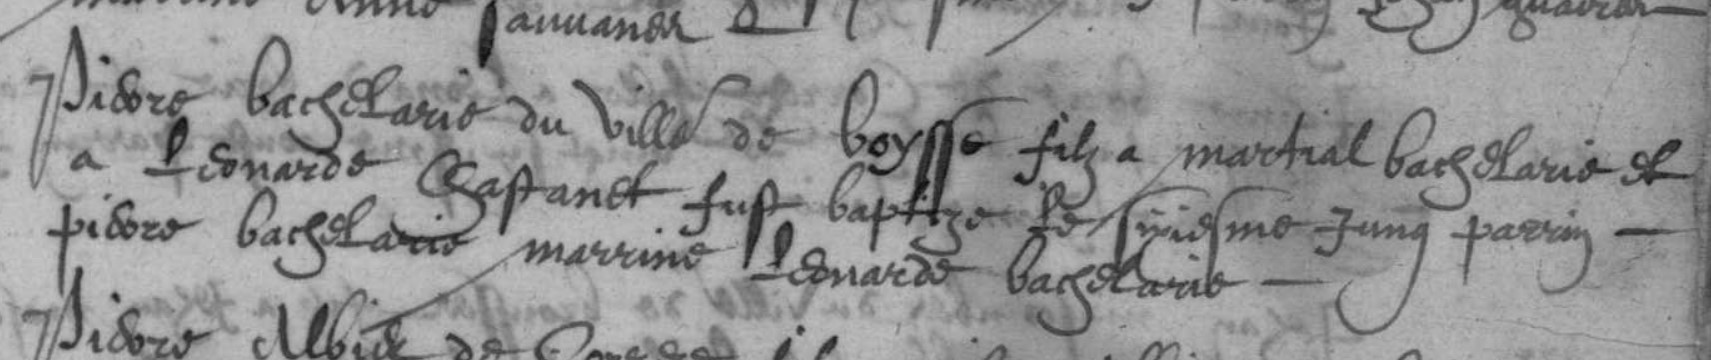 Anne
Pierre bachelarie du Villa de boysse filz a martial bachelarie et
a Leonarde Chastanet fust baptize le sixiesme Jung parrin
pierre bachelarie marrine Leonarde bachelarie
Pierre Albier de